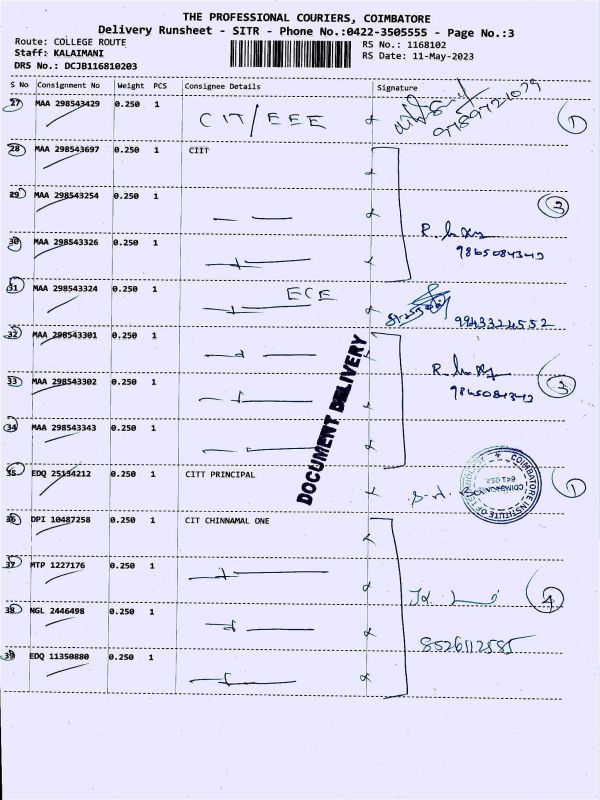 THE PROFESSIONAL COURIERS, COIMBATORE
Delivery Runsheet - SITR - Phone No.:0422-3505555 - Page No.:3
Route: COLLEGE ROUTE
Staff: KALAIMANI
DRS No.: DCJB116810203
RS No.: 1168102
RS Date: 11-May-2023
S No Consignment No Weight PCS Consignee Details Signature
27 MAA 298543429 0.250 1 CIT/EEE 1
28 MAA 298543697 0.250 1 CIIT
29 MAA 298543254 0.250 1 3
30 MAA 298543326 0.250 1 9865084342
31 MAA 298543324 0.250 1 ECE 9943324552
32 MAA 298543301 0.250 1
33 MAA 298543302 0.250 1 9865084342 3
34 MAA 298543343 0.250 1
DOCUMENT DELIVERY
35 EDQ 25134212 0.250 1 CITT PRINCIPAL 1
COIMBATORE INSTITUTE OF TECHNOLOGY
COIMBATORE
641 014
36 DPI 10487258 0.250 1 CIT CHINNAMAL ONE
37 MTP 1227176 0.250 1 4
38 NGL 2446498 0.250 1 8526112585
39 EDQ 11350880 0.250 1